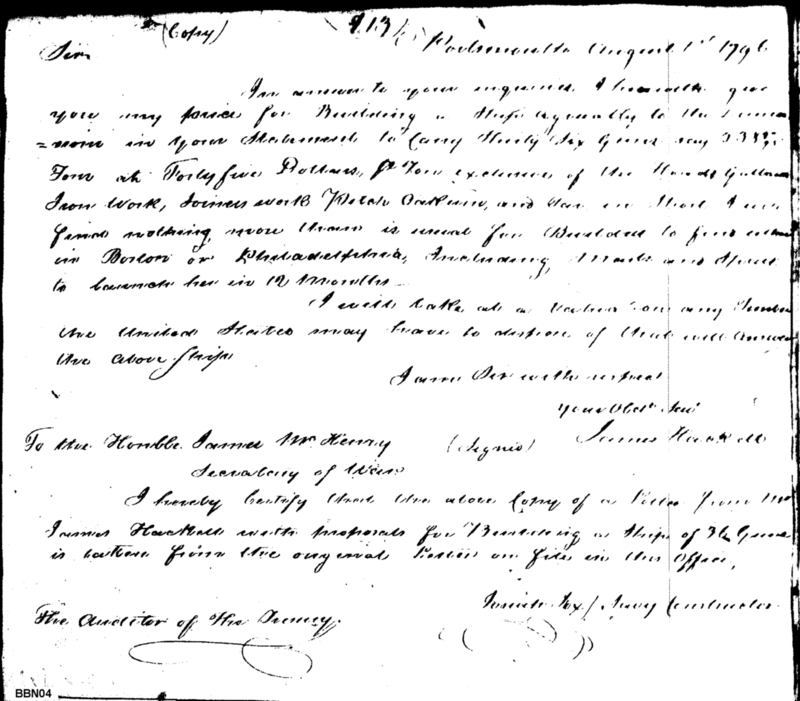 (Copy) 113
Portsmouth August 1st 1796
Sir
In answer to your inquiries I herewith give
you my price for Building a Ship agreeably to the Dimen
=sions in your Statement to Carry Thirty Six Guns say
Tons at Forty five Dollars, pr Ton exclusive of the Heads
Iron Work, Joiners work Pitch Oakum, and Tar in Short I am
find nothing more than is usual for Builders to find either
in Boston or Philadelphia, Including Masts and Spars
to launch her in 12 Months
I will take at a Valuation any Timber
the United States may have to dispose of that will answer
the above Ship
I am Sir with respect
your Obdt Ser
(Signed) James Hackett
To the Honble James McHenry
Secretary of War
I hereby Certify that the above Copy of a Letter from Mr
James Hackett with proposals for Building a Ship of 36 Guns
is taken from the original Letter on file in this Office,
Josiah Fox / Navy Constructor
The Auditor of the Treasy.
BBN04